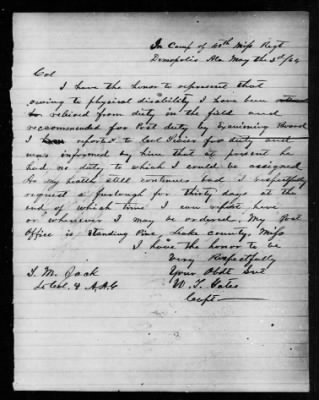 In Camp of 40th Miss Regt
Demopolis Ala May the 3d /64
Col
I have the honor to represent that
owing to physical disability I have been
relieved from duty in the field and
recommended for Post duty by Examining Board
I reported to Col for duty and
was informed by him that at present he
had no duty to which I could be assigned
As my health still continues bad I respectfully
request a furlough for thirty days at the
end of which time I can report here
or wherever I may be ordered, My Post
Office is Standing Pine, Leake county, Miss
I have the honor to be
Very Respectfully
T. M. Jack
Your Obdt Svt
Lt Col. & A.A.G
W. T. Yates
Capt